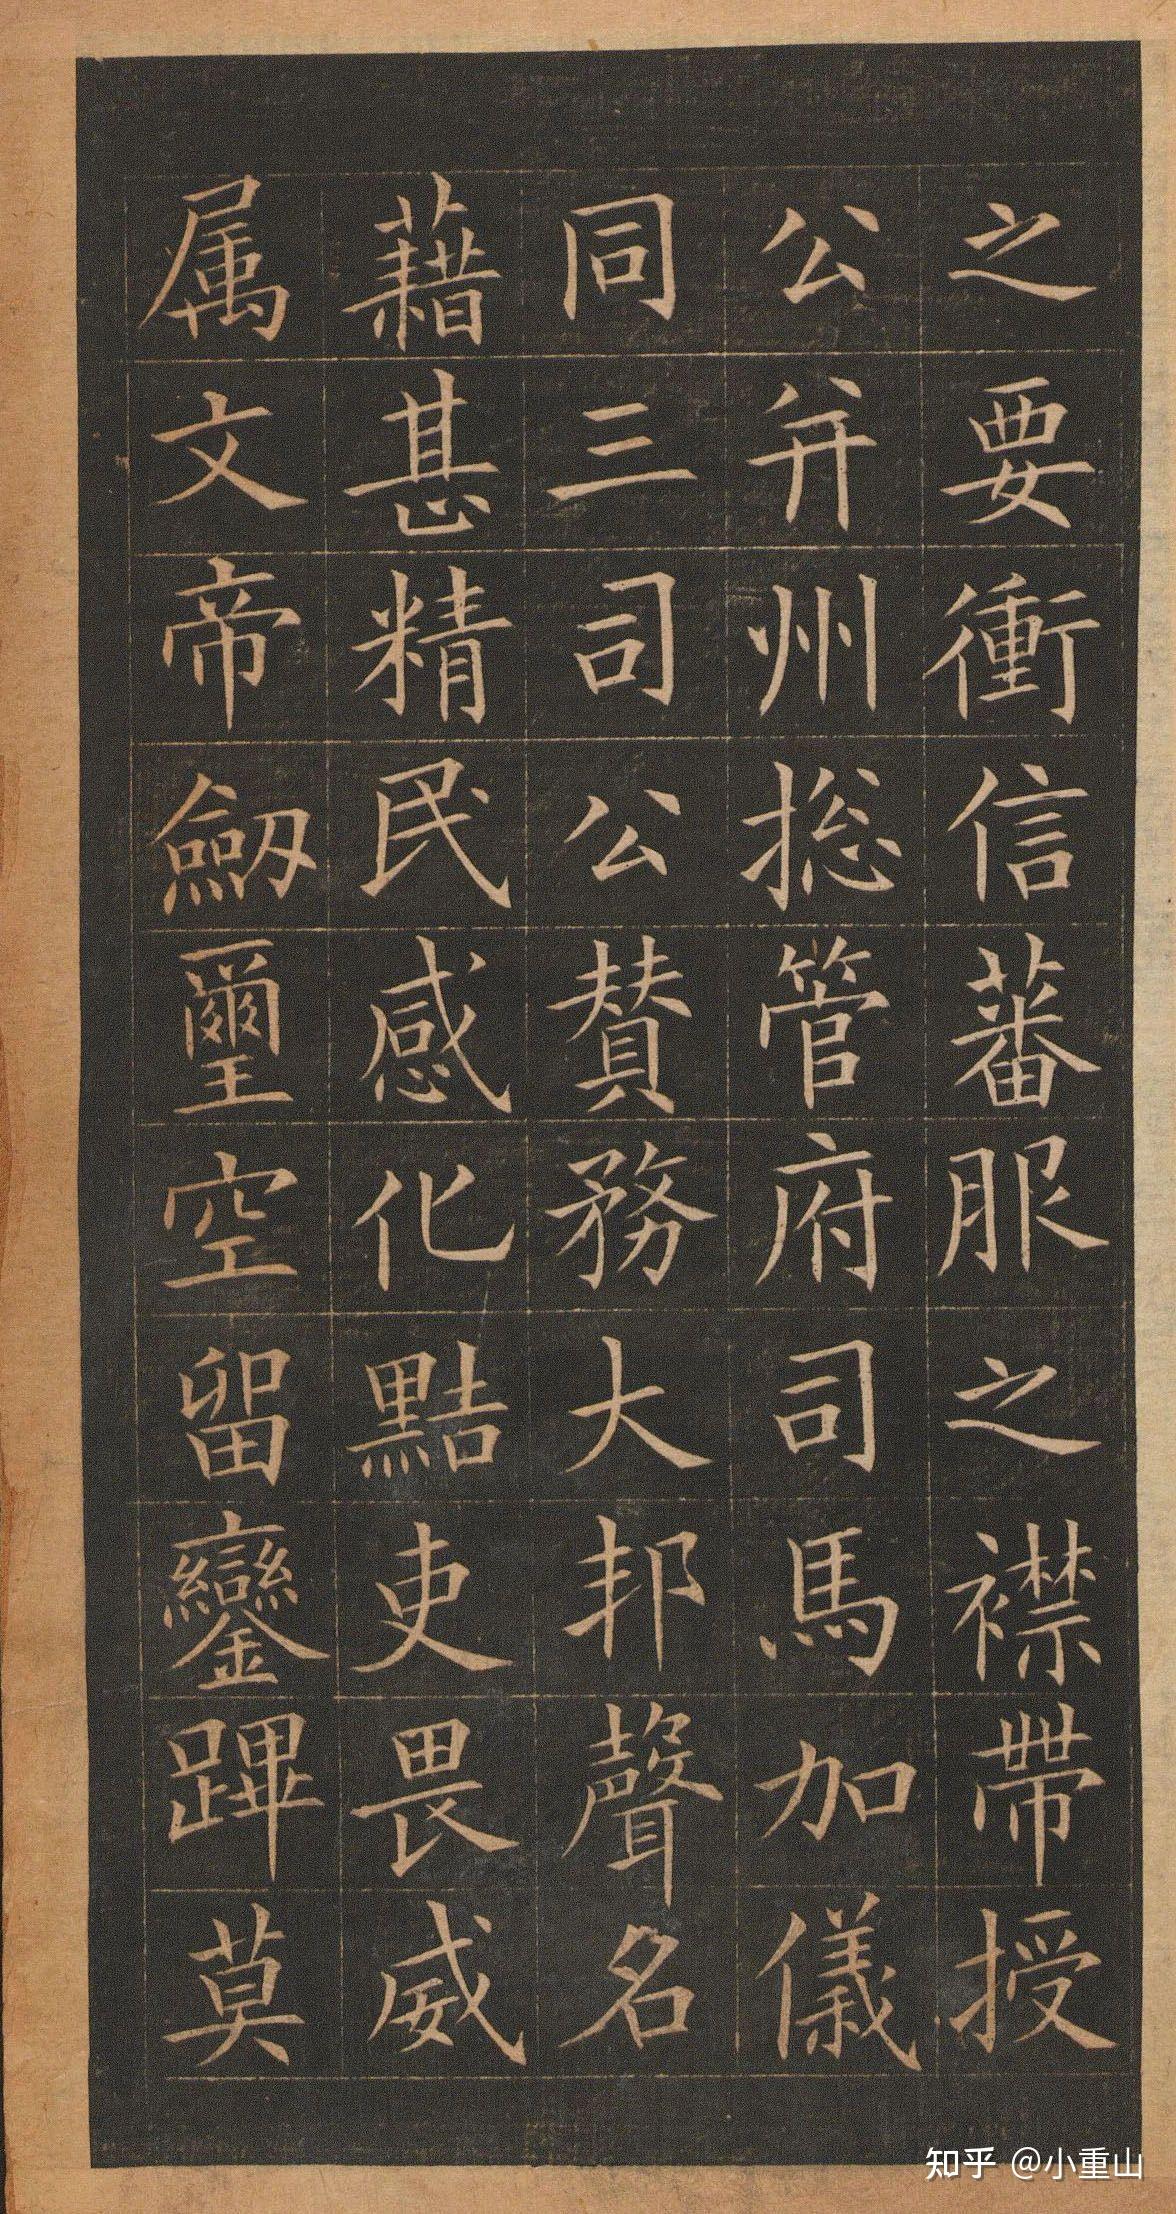 之要衝信蕃服之襟帶授
公并州捴管府司馬加儀
同三司公賛務大邦聲名
藉甚精民感化點吏畏威
属文帝劒璽空留鑾蹕莫
知乎 @小重山